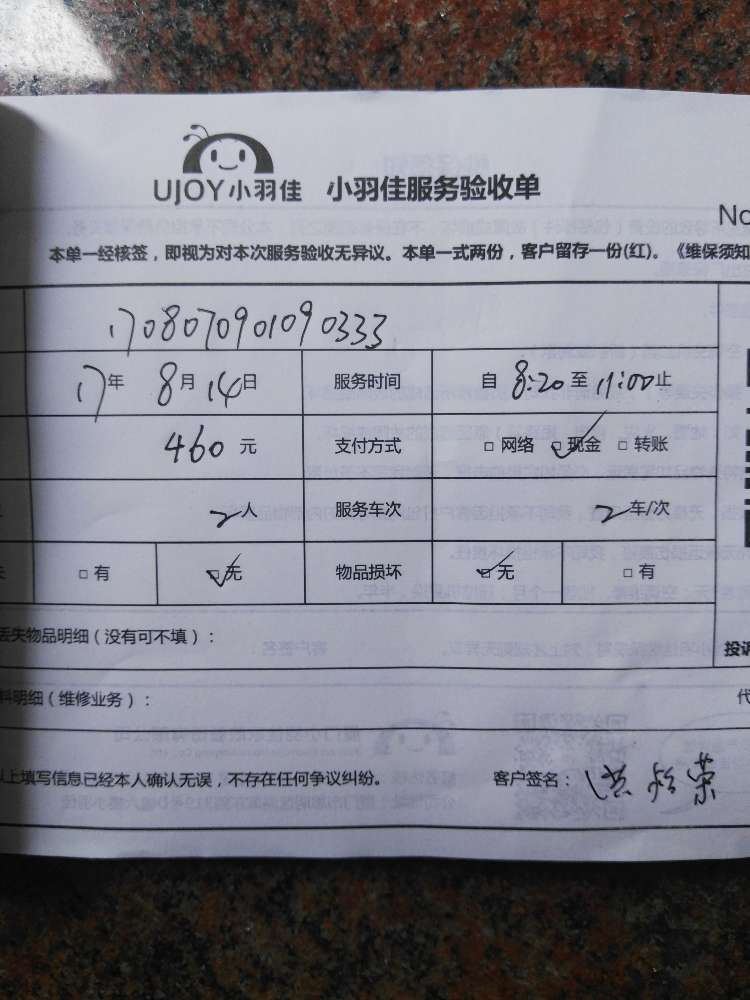 UJOY小羽佳 小羽佳服务验收单
No
本单一经核签，即视为对本次服务验收无异议。本单一式两份，客户留存一份(红)。《维保须知
1708070901090333
17年 8月 14日 服务时间 自 8:20 至 11:00 止
460 元 支付方式 □ 网络 ☑ 现金 □ 转账
2人 服务车次 2车/次
□ 有 ☑ 无 物品损坏 ☑ 无 □ 有
丢失物品明细（没有可不填）：
投诉
料明细（维修业务）：
代
以上填写信息已经本人确认无误，不存在任何争议纠纷。 客户签名：洪 荣